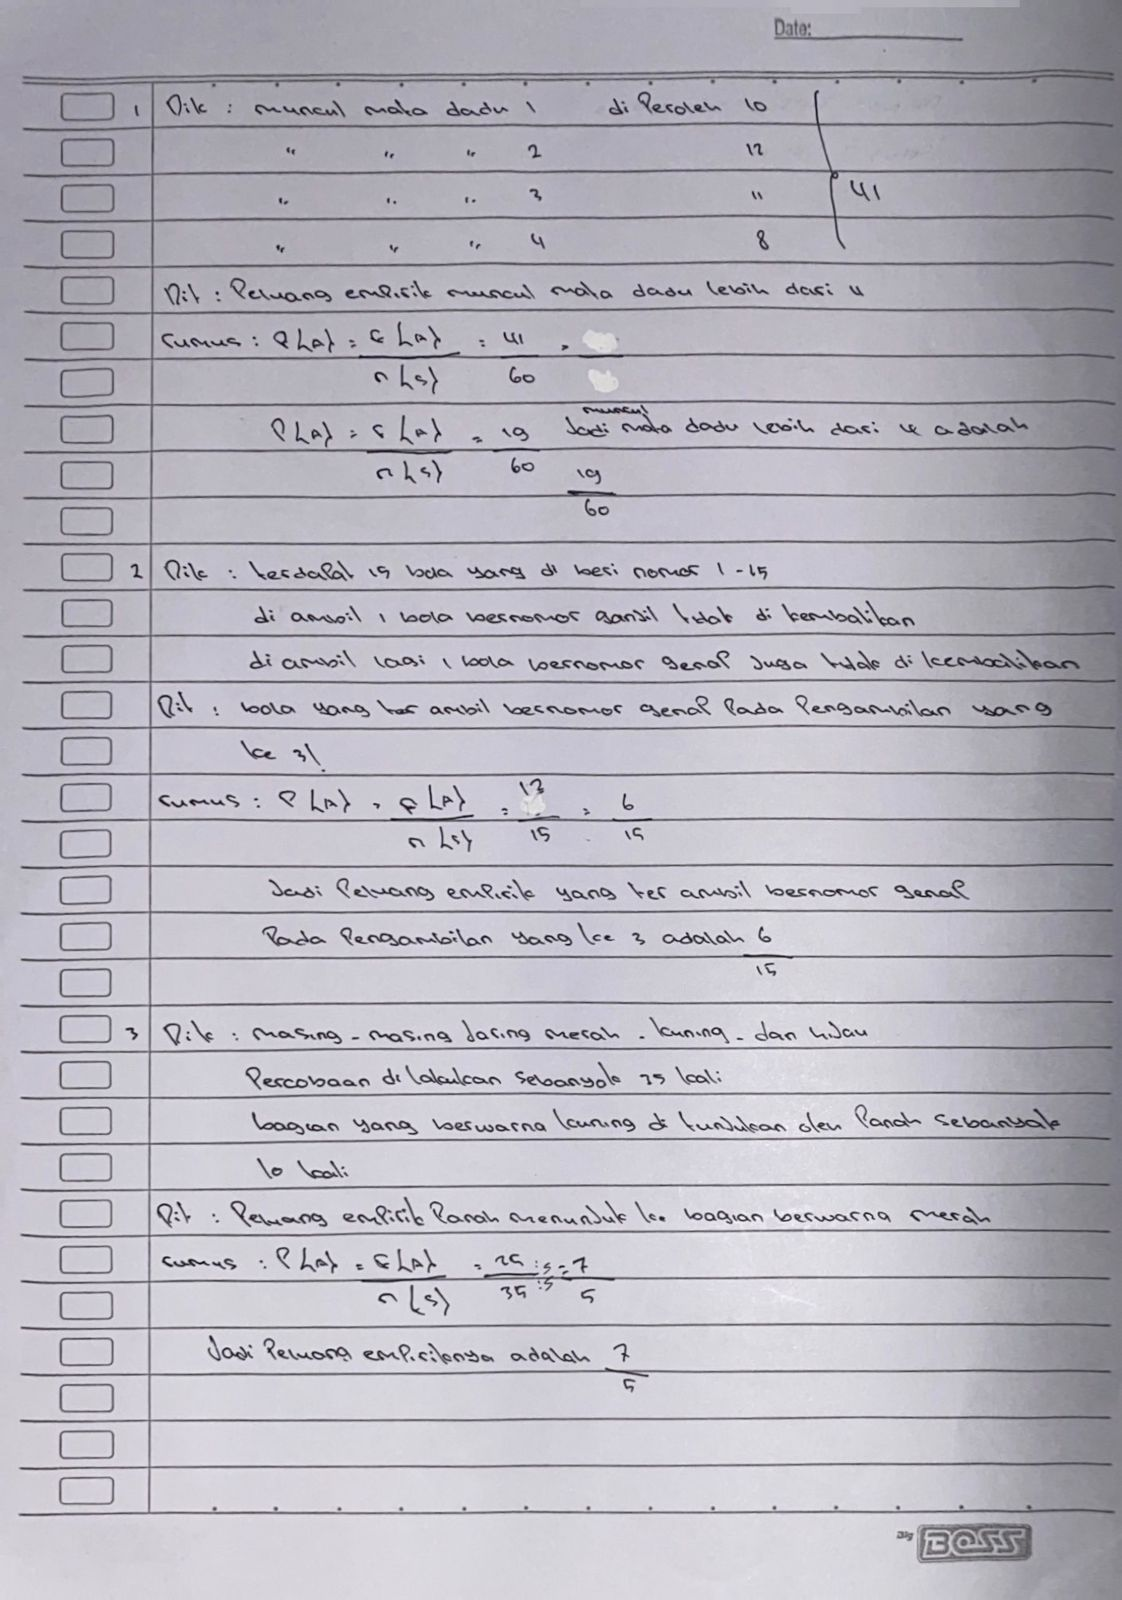 Date:
1 Dik : muncul mata dadu 1 di Peroleh 10
" " " 2 12
" " " 3 11
" " " 4 8
41
Dit : Peluang empirik muncul mata dadu lebih dari 4
rumus : P(A) = f(A) / n(s) = 41 / 60 =
P(A) = f(A) / n(s) = 19 / 60 Jadi muncul mata dadu lebih dari 4 adalah
19 / 60
2 Dik : terdapat 15 bola yang di beri nomor 1 - 15
di ambil 1 bola bernomor ganjil tidak di kembalikan
di ambil lagi 1 bola bernomor genap Juga tidak di kembalikan
Dit : bola yang ter ambil bernomor genap Pada Pengambilan yang
ke 3!
rumus : P(A) = f(A) / n(s) = 13 / 15 = 6 / 15
Jadi Peluang empirik yang ter ambil bernomor genap
Pada Pengambilan yang ke 3 adalah 6 / 15
3 Dik : masing - masing Jaring merah - kuning - dan hiJau
Percobaan di lakukan sebanyak 35 kali
bagian yang berwarna kuning di tunJukan oleh Panah sebanyak
10 kali
Dit : Peluang empirik Panah menunJuk ke bagian berwarna merah
rumus : P(A) = f(A) / n(s) = 25 / 35 :5 / :5 = 7 / 5
Jadi Peluang empiriknya adalah 7 / 5
Big BOSS